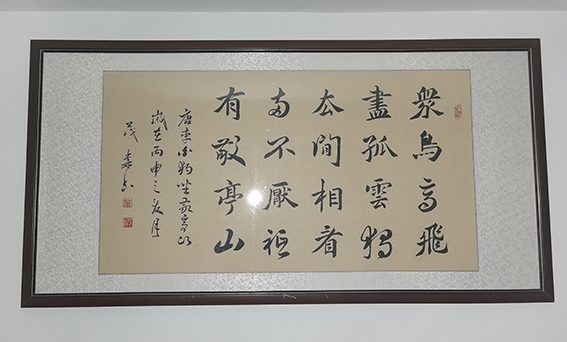 衆鳥高飛
盡孤雲獨
去閒相看
兩不厭祗
有敬亭山
唐李白獨坐敬亭山
歲在丙申之夏月
茂